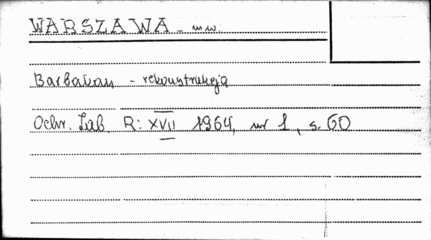 WARSZAWA - m.w.
Barbakan - rekonstrukcja
Ochr. Zab. R: XVII 1964, nr 1, s. 60